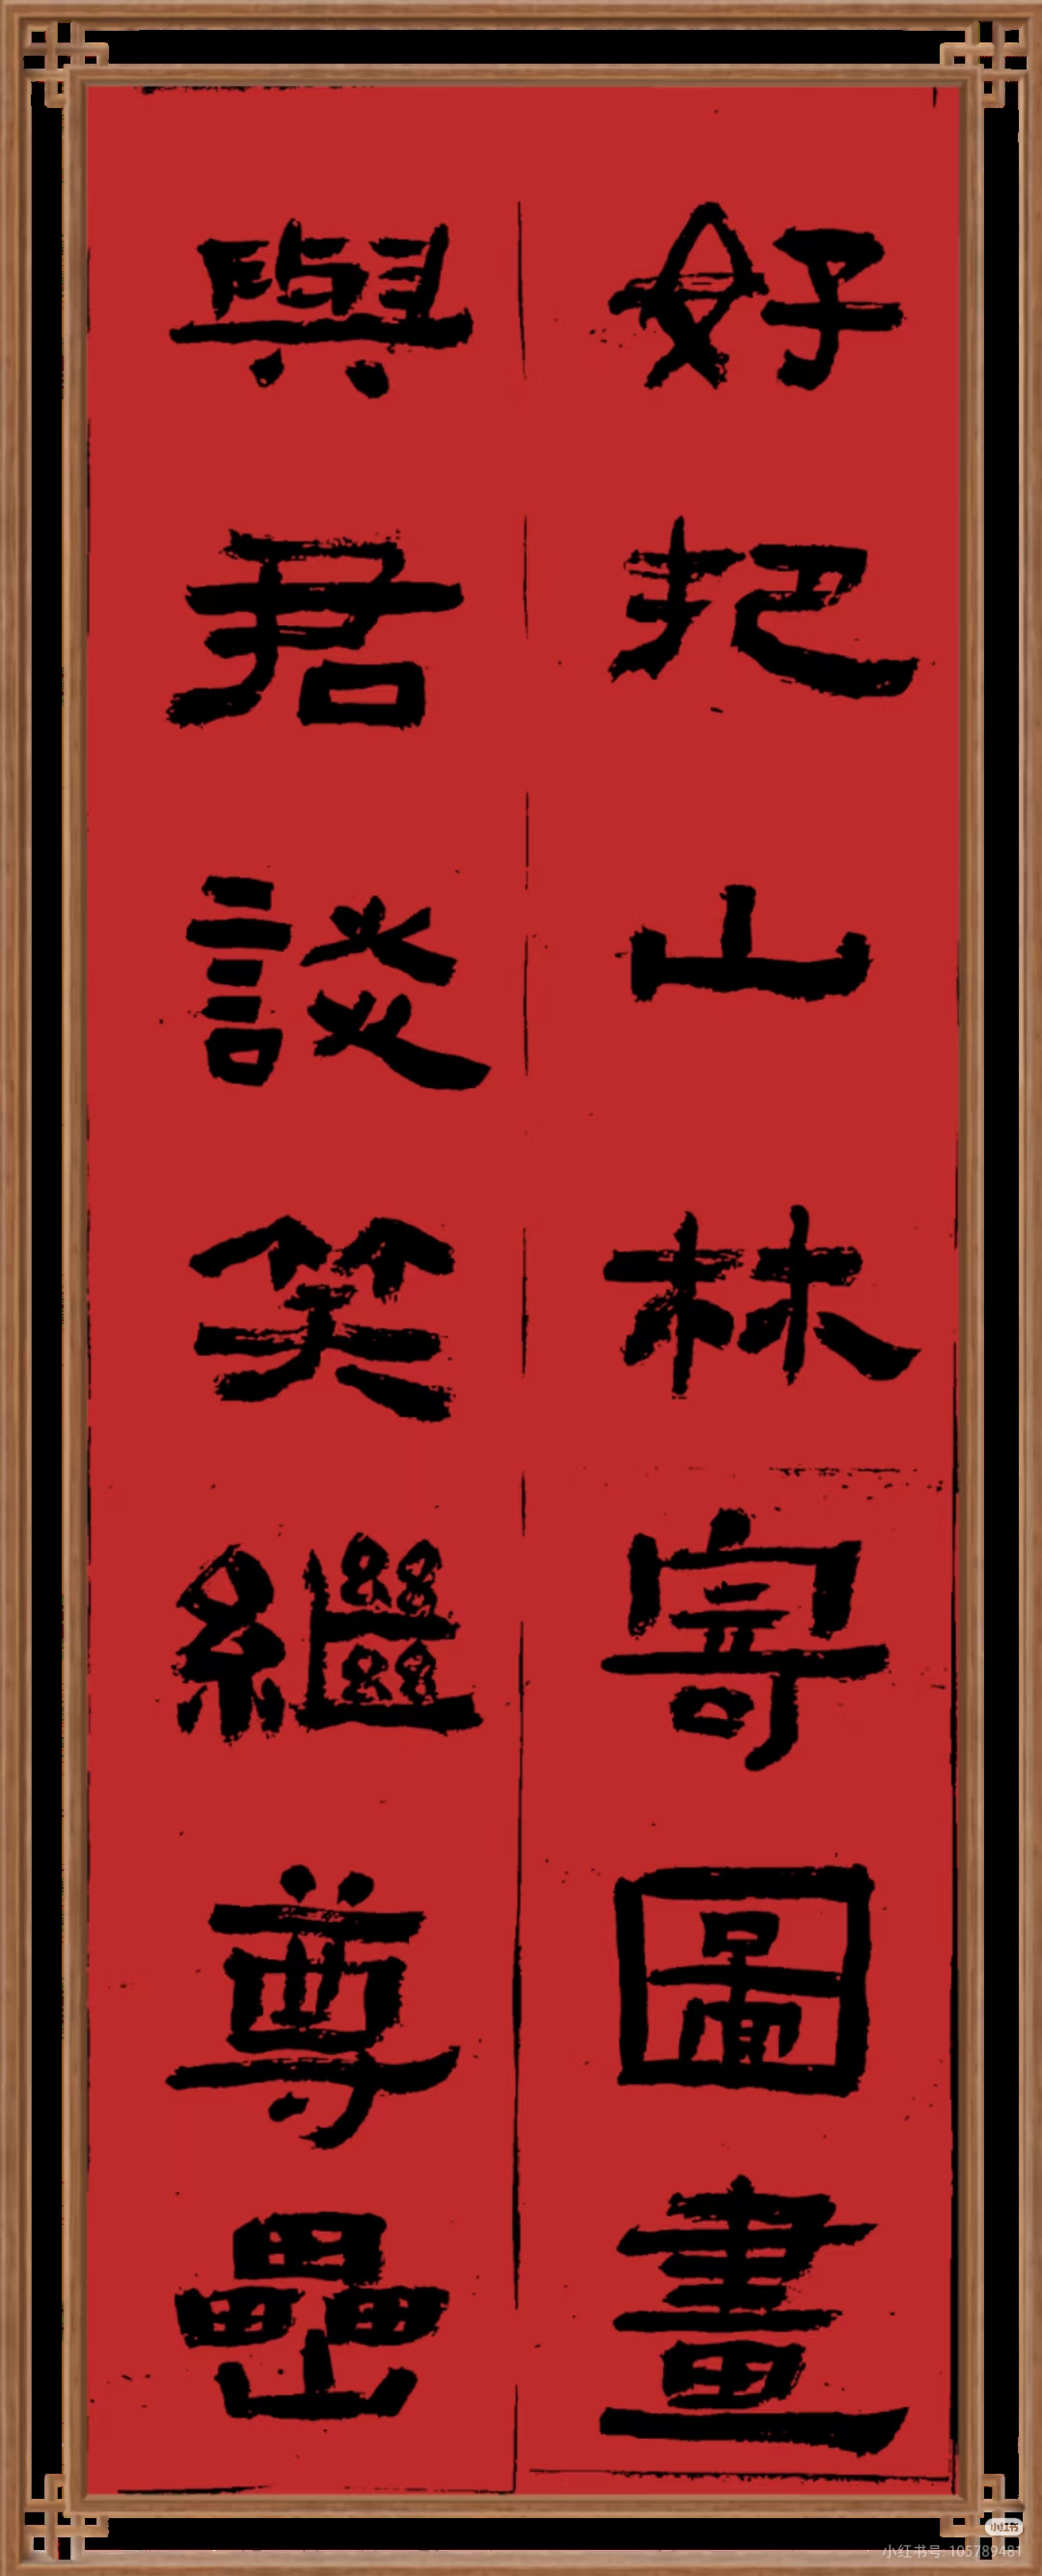 好把山林寄圖畫
與君談笑繼尊罍
小红书
小红书号: 105789481